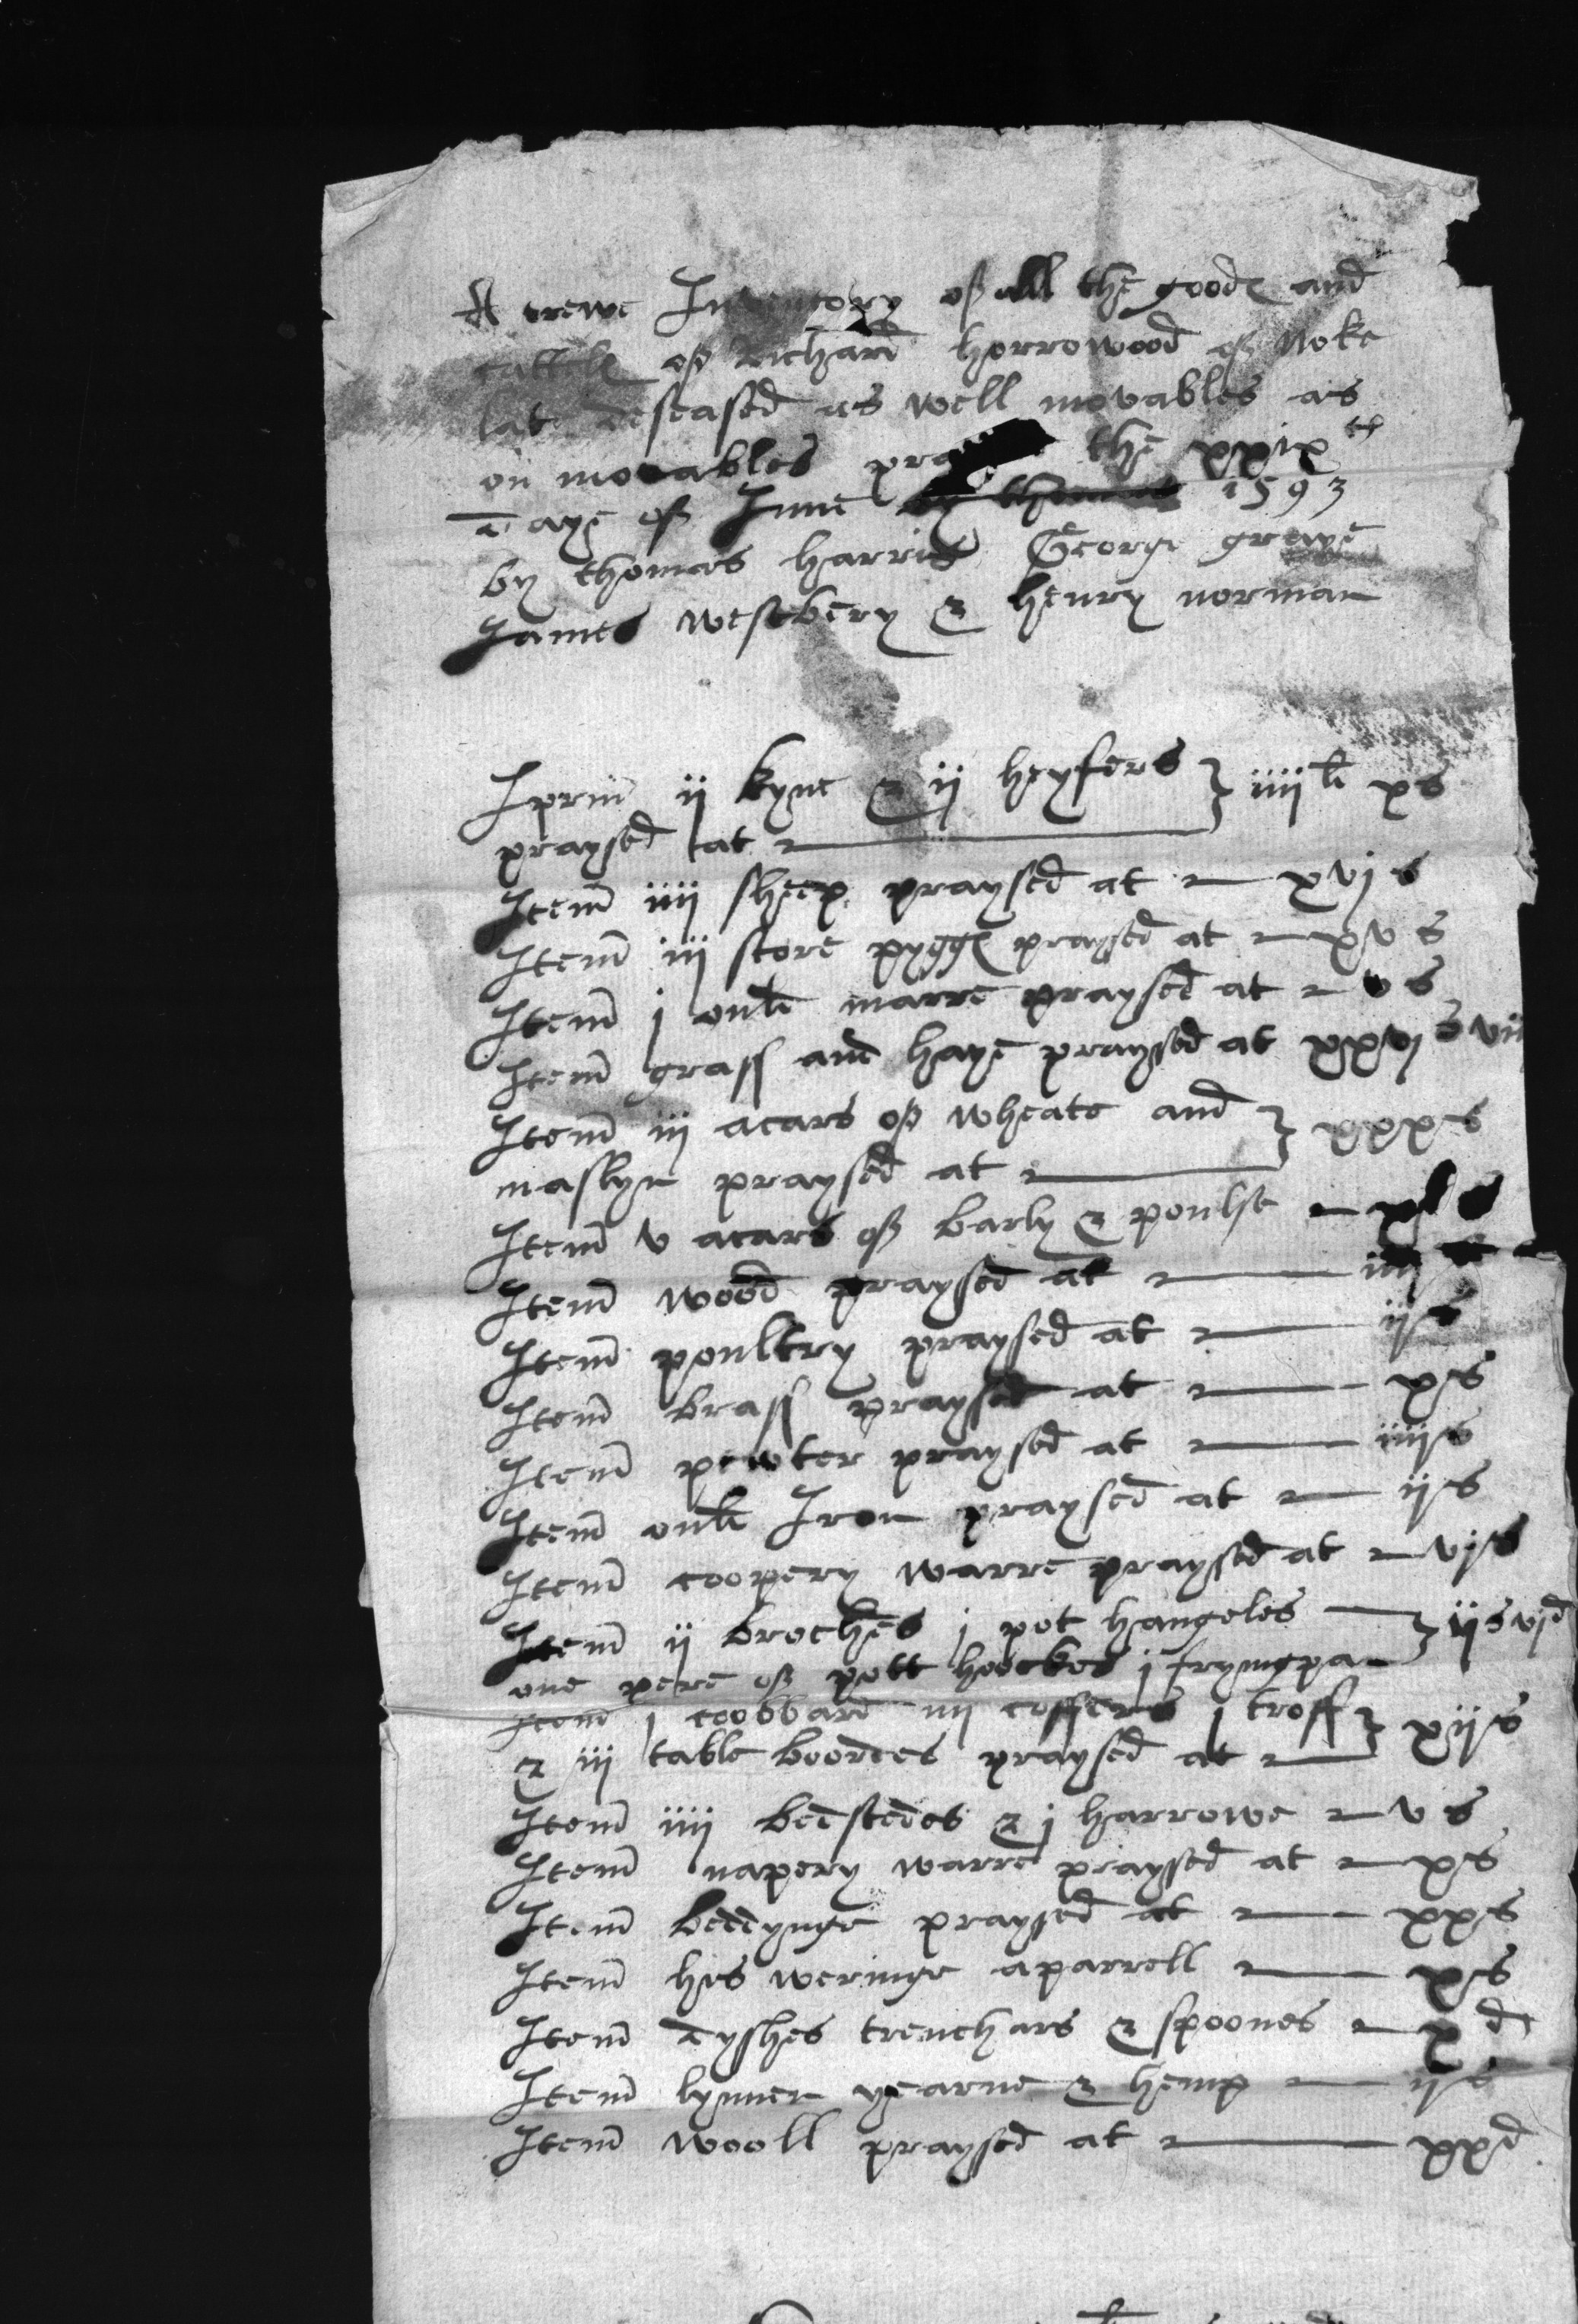 A trewe Inventory of all the goodes and
cattells of Richard horrowood of Noke
late deseased as well movables as
on movables the xxixth
daye of June by thomas 1593
by thomas harris George graye
James westbery & henry norman
Iprim ij kyne & ij heyfers } iiijli xs
praysed at
Item iiij sheep praysed at xvj s
Item iij store pygges praysed at xv s
Item j oulde marre praysed at v s
Item grass and haye praysed at xxvj s viij
Item iij acars of wheate and } xxxs
maslyn praysed at
Item v acars of barly & poulse xls
Item wood praysed at
Item poultry praysed at ijs
Item brass praysed at xs
Item pewter praysed at iiijs
Item oulde Iron praysed at ijs
Item coopery warre praysed at vjs
Item ij broches j pot hangeles } ijs vjd
one pere of pott hoockes j fryingpan
Item j coobbard iij coffers j troff } xijs
& iij table boordes praysed at
Item iiij bedstedes & j harrowe v s
Item napery warre praysed at xs
Item beddynge praysed at xxs
Item his weringe aparrell xs
Item dyshes trenchars & spoones xd
Item lynnen yearne & hemp ijs
Item wooll praysed at xxd